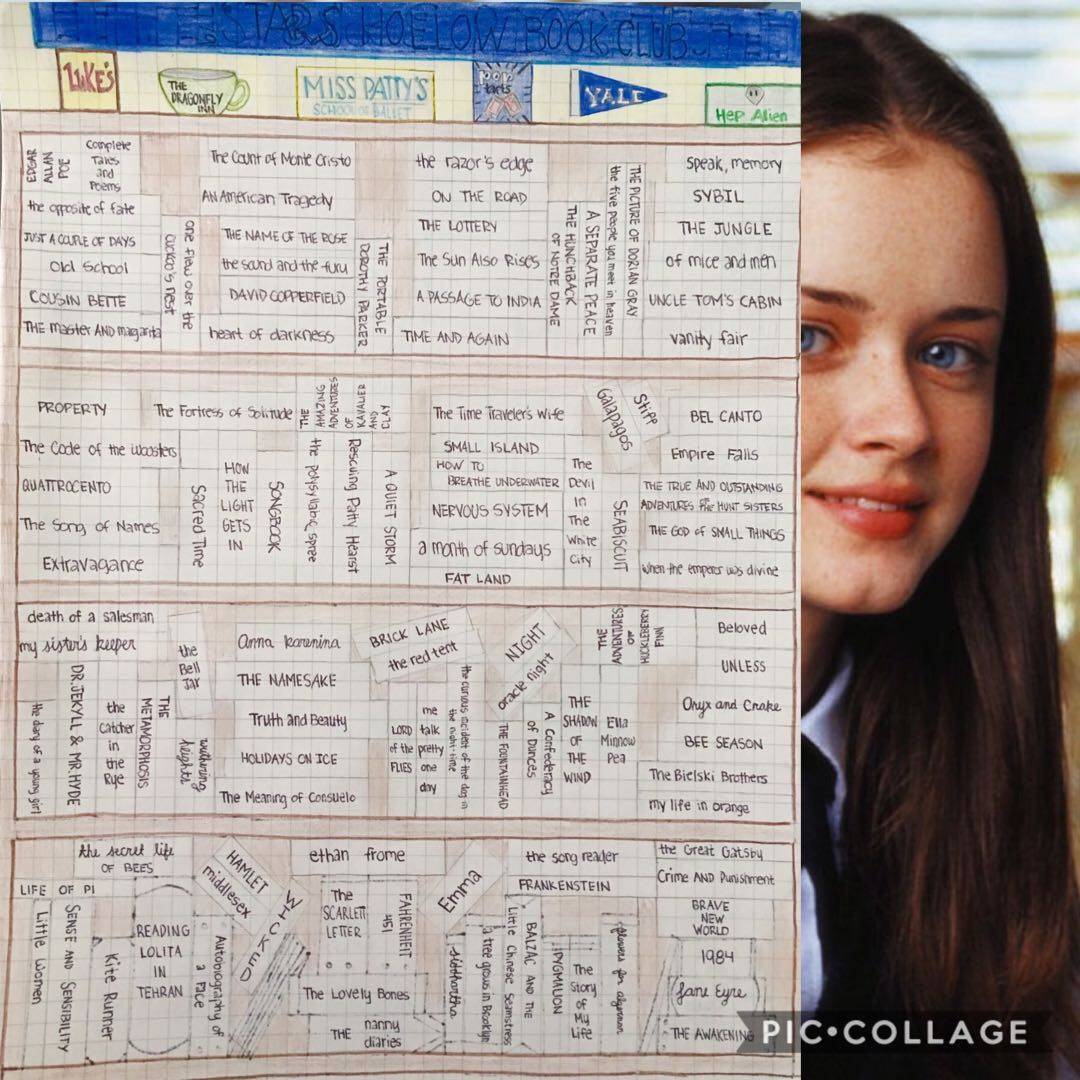 STARS HOLLOW BOOK CLUB
LUKE'S
THE
DRAGONFLY
INN
MISS PATTY'S
SCHOOL OF BALLET
pop
tarts
YALE
Hep Alien
EDGAR
ALLAN
POE
Complete
Tales
and
Poems
the opposite of fate
JUST A COUPLE OF DAYS
Old School
COUSIN BETTE
THE Master AND Margarita
one flew over the
cuckoo's nest
The Count of Monte Cristo
AN American Tragedy
THE NAME OF THE ROSE
the sound and the fury
DAVID COPPERFIELD
heart of darkness
THE PORTABLE
DOROTHY PARKER
the razor's edge
ON THE ROAD
THE LOTTERY
The Sun Also Rises
A PASSAGE TO INDIA
TIME AND AGAIN
THE HUNCHBACK
OF NOTRE DAME
A SEPARATE PEACE
the five people you meet in heaven
THE PICTURE OF DORIAN GRAY
Speak, memory
SYBIL
THE JUNGLE
of mice and men
UNCLE TOM'S CABIN
vanity fair
PROPERTY
The Code of the Woosters
QUATTROCENTO
The Song of Names
Extravagance
The Fortress of Solitude
Sacred Time
HOW
THE
LIGHT
GETS
IN
SONGBOOK
THE
AMAZING
ADVENTURES
OF
KAVALIER
AND
CLAY
the polysyllabic spree
Rescuing Patty Hearst
A QUIET STORM
The Time Traveler's Wife
SMALL ISLAND
HOW TO
BREATHE UNDERWATER
NERVOUS SYSTEM
a month of sundays
FAT LAND
The
Devil
in
The
White
City
Galapagos
Stiff
SEABISCUIT
BEL CANTO
Empire Falls
THE TRUE AND OUTSTANDING
ADVENTURES OF THE HUNT SISTERS
THE GOD OF SMALL THINGS
when the emperor was divine
death of a salesman
my sister's keeper
the diary of a young girl
DR. JEKYLL & MR. HYDE
the
Catcher
in
the
Rye
THE
METAMORPHOSIS
the
Bell
Jar
wuthering
heights
Anna Karenina
THE NAMESAKE
Truth and Beauty
HOLIDAYS ON ICE
The Meaning of Consuelo
BRICK LANE
the red tent
LORD
of the
FLIES
me
talk
pretty
one
day
the curious incident of the dog in
the night-time
THE FOUNTAINHEAD
NIGHT
oracle night
A Confederacy
of Dunces
THE
SHADOW
OF
THE
WIND
THE
ADVENTURES
OF
HUCKLEBERRY
FINN
Ella
Minnow
Pea
Beloved
UNLESS
Oryx and Crake
BEE SEASON
The Bielski Brothers
my life in orange
the secret life
OF BEES
LIFE OF PI
Little Women
SENSE AND SENSIBILITY
Kite Runner
READING
LOLITA
IN
TEHRAN
Autobiography of
a Face
HAMLET
middlesex
WICKED
ethan frome
The
SCARLETT
LETTER
FAHRENHEIT
451
The Lovely Bones
THE nanny
diaries
Emma
siddhartha
a tree grows in Brooklyn
Little Chinese Seamstress
BALZAC AND THE
PYGMALION
The
Story
of
My
Life
flowers for algernon
the song reader
FRANKENSTEIN
the Great Gatsby
Crime AND Punishment
BRAVE
NEW
WORLD
1984
Jane Eyre
THE AWAKENING
PIC•COLLAGE